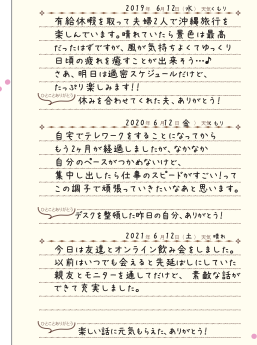 2019年 6月12日（水） 天気 くもり
有給休暇を取って夫婦2人で沖縄旅行を
楽しんでいます。晴れていたら景色は最高
だったはずですが、風が気持ちよくてゆっくり
日頃の疲れを癒すことが出来そう…♪
さあ、明日は過密スケジュールだけど、
たっぷり楽しみます!!
ひとことありがとう
休みを合わせてくれた夫、ありがとう！
2020年 6月12日（金） 天気 もり
自宅でテレワークをすることになってから
もう2ヶ月が経過しましたが、なかなか
自分のペースがつかめないけど、
集中し出したら仕事のスピードがすごい！って
この調子で頑張っていきたいなあと思います。
ひとことありがとう
デスクを整頓した昨日の自分、ありがとう！
2021年 6月12日（土） 天気 晴れ
今日は友達とオンライン飲み会をしました。
以前はいつでも会えると先延ばしにしていた
親友とモニターを通してだけど、素敵な話が
できて充実しました。
ひとことありがとう
楽しい話に元気もらえた、ありがとう！